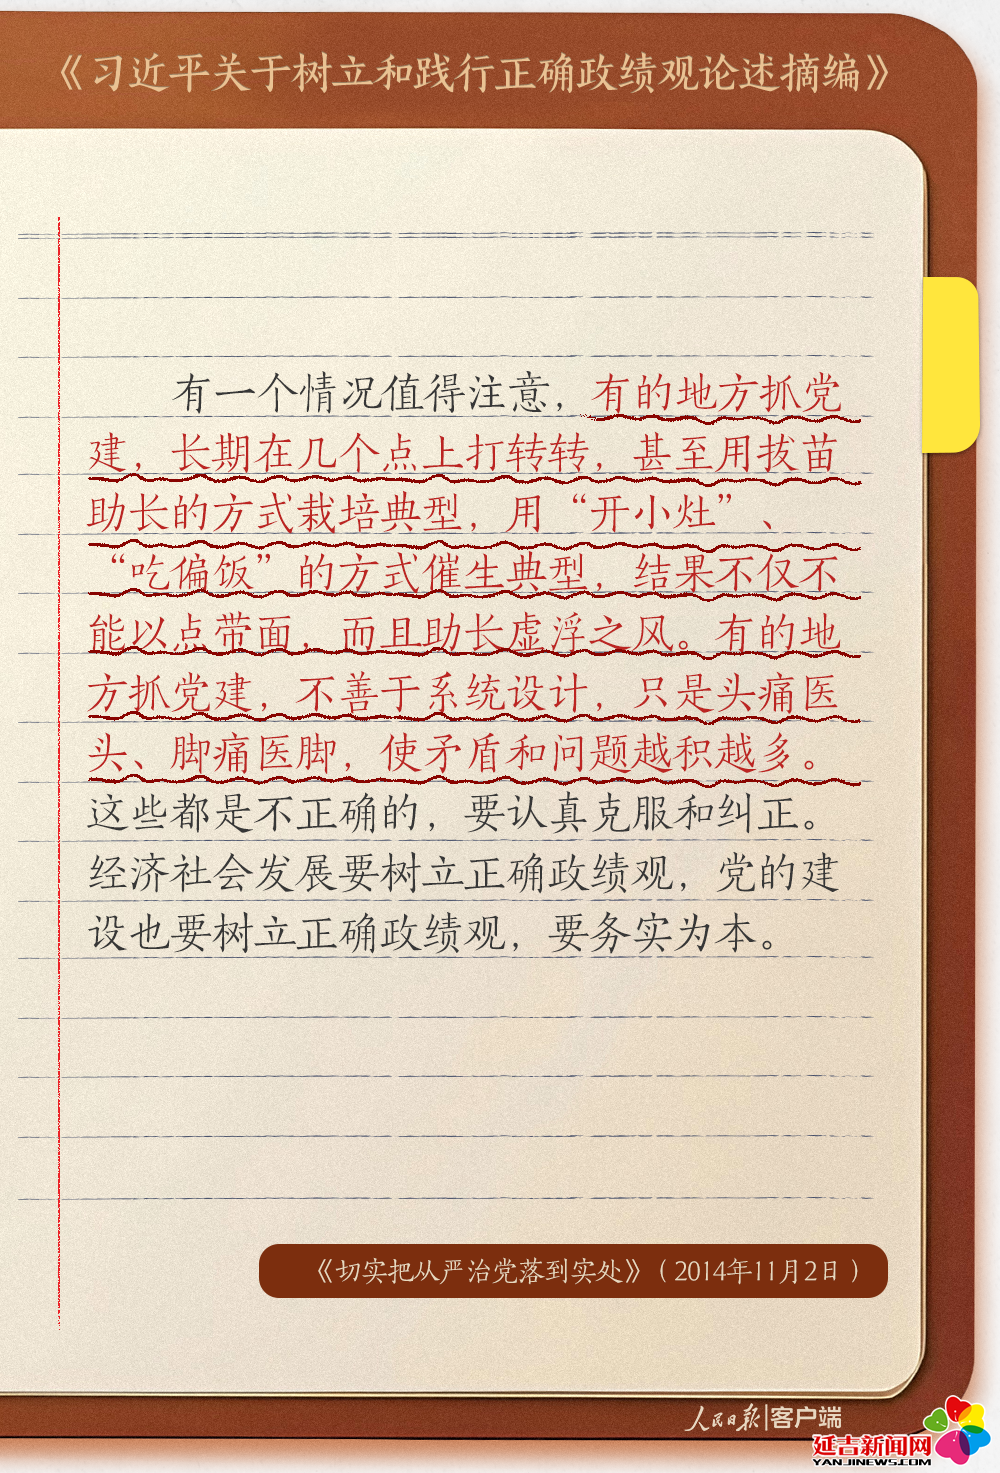 《习近平关于树立和践行正确政绩观论述摘编》
有一个情况值得注意，有的地方抓党
建，长期在几个点上打转转，甚至用拔苗
助长的方式栽培典型，用“开小灶”、
“吃偏饭”的方式催生典型，结果不仅不
能以点带面，而且助长虚浮之风。有的地
方抓党建，不善于系统设计，只是头痛医
头、脚痛医脚，使矛盾和问题越积越多。
这些都是不正确的，要认真克服和纠正。
经济社会发展要树立正确政绩观，党的建
设也要树立正确政绩观，要务实为本。
《切实把从严治党落到实处》（2014年11月2日）
人民日报|客户端
延吉新闻网
YANJINEWS.COM